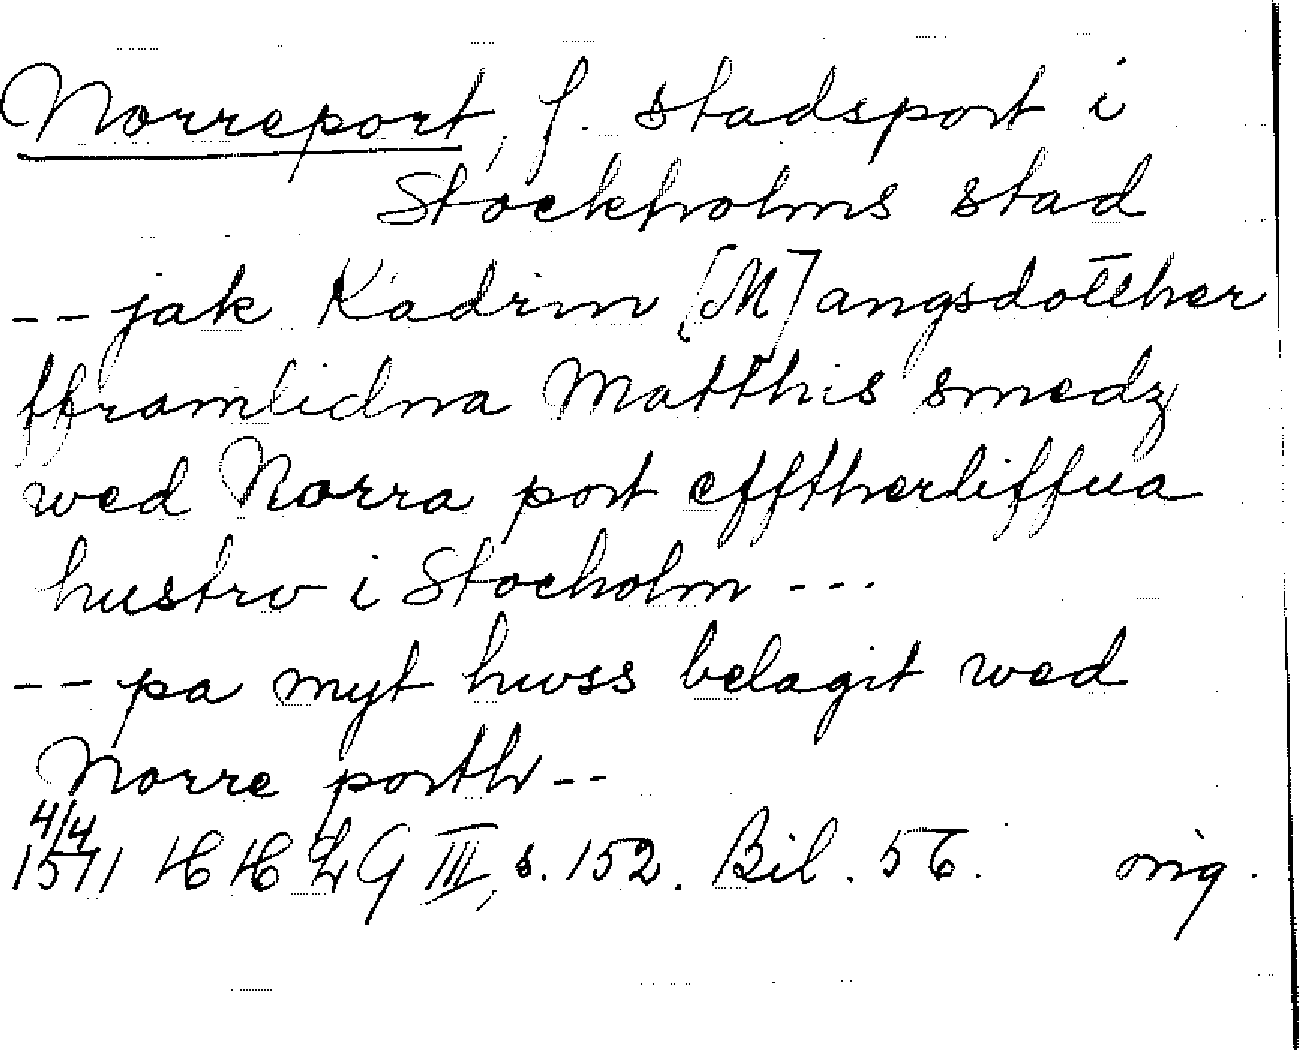 Norreport, f. stadsport i
Stockholms stad
-- jak Kadrin [M]angsdotther
fframlidna Matthis smedz
wed Norra port efftherliffua
hustrv i Stocholm ---
-- pa myt hwss belagit wed
Norre porth --
4/4
1511 HH LG III, s. 152. Bil. 56. orig.